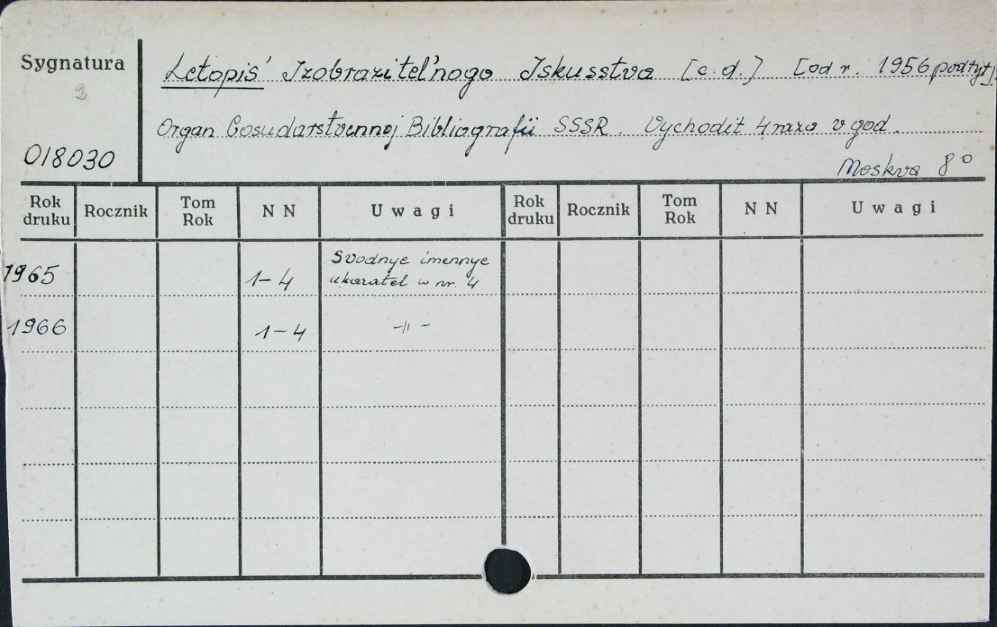 Sygnatura
3
018030
Letopis' Izobrazitel'nogo Iskusstva [c.d.] [od r. 1956 podtyt.:
Organ Gosudarstvennoj Bibliografii SSSR. Vychodit 4 raza v god.
Moskva 8°
Rok druku Rocznik Tom Rok N N Uwagi Rok druku Rocznik Tom Rok N N Uwagi
1965 1-4 Svodnye imennye
ukazatel w nr. 4
1966 1-4 -||-